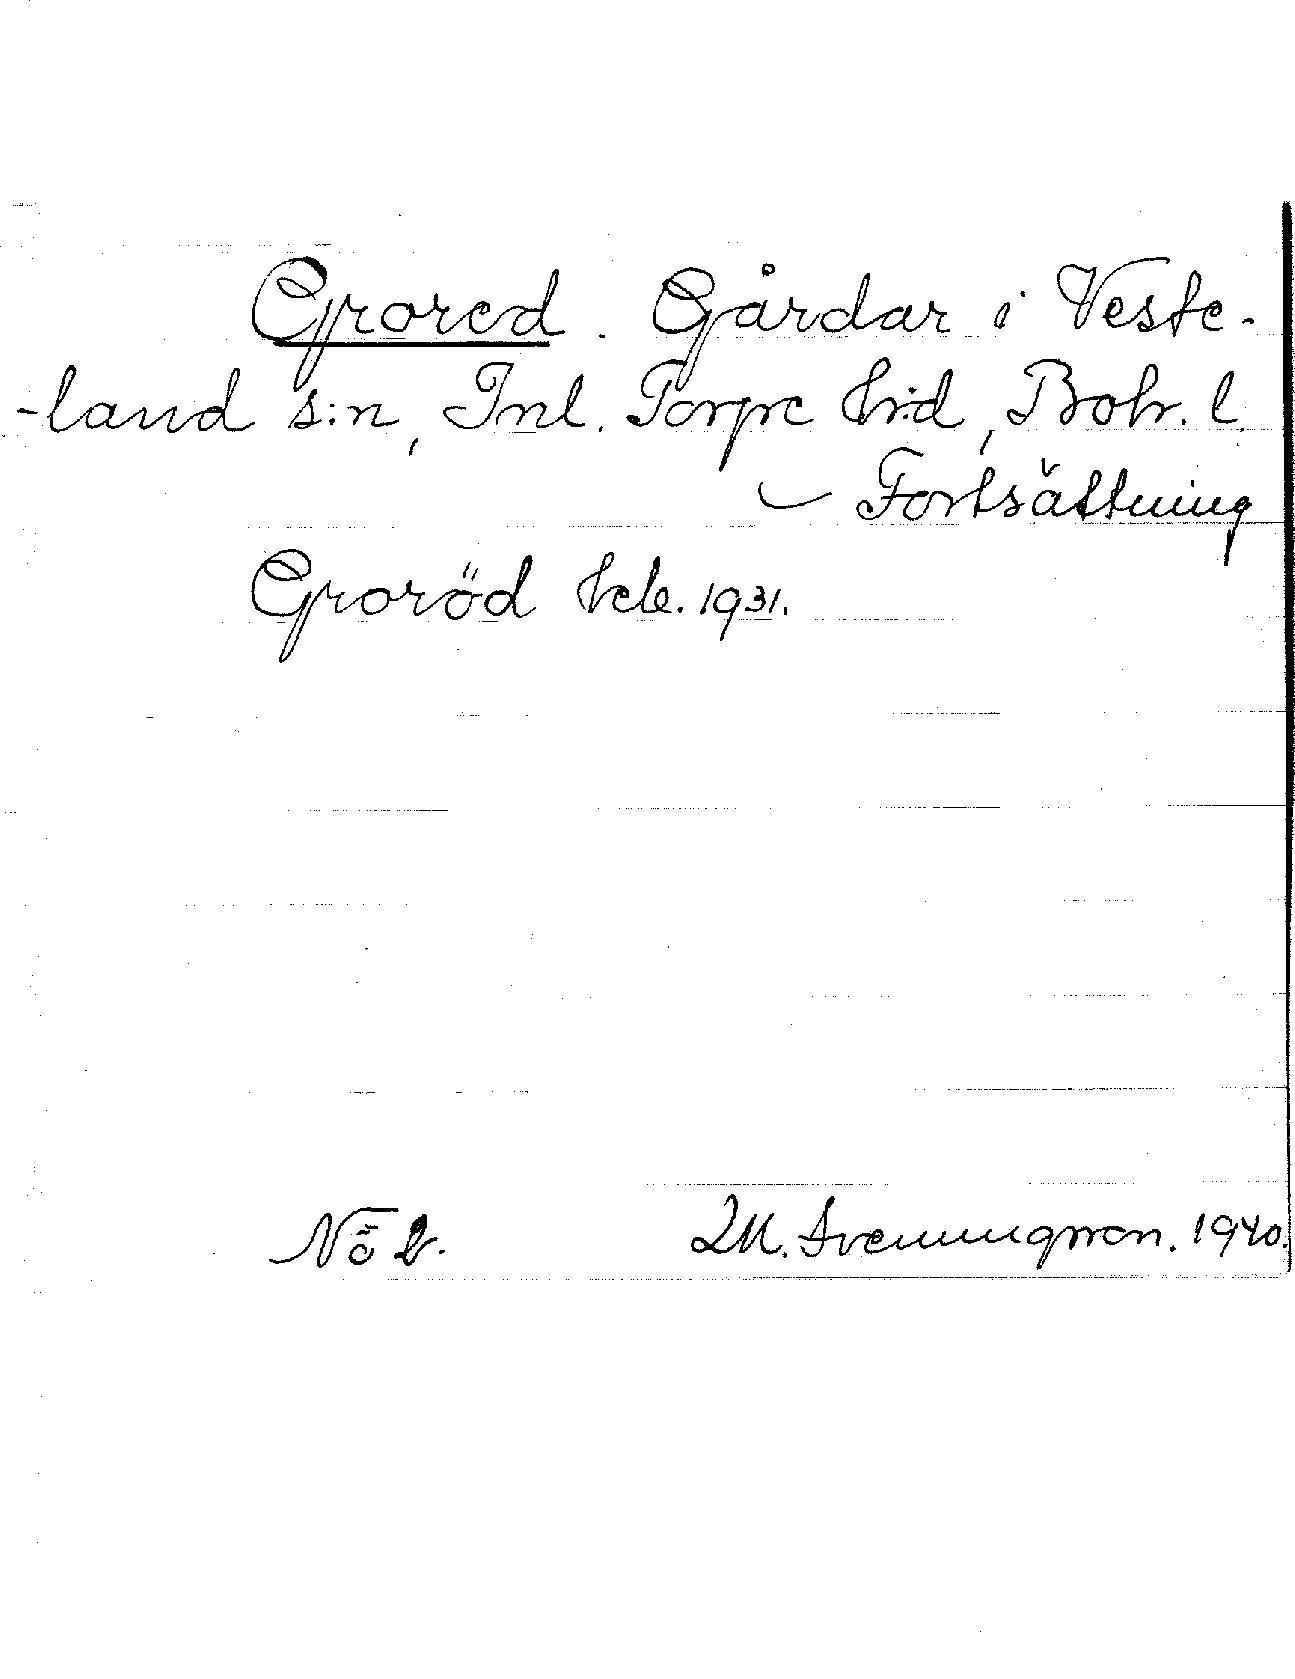 Grored. Gårdar i Veste-
-land s:n, Inl. Torpe h:d, Boh. l.
Fortsättning
Groröd 1931.
No 2.
M. Svenningsson. 1940.